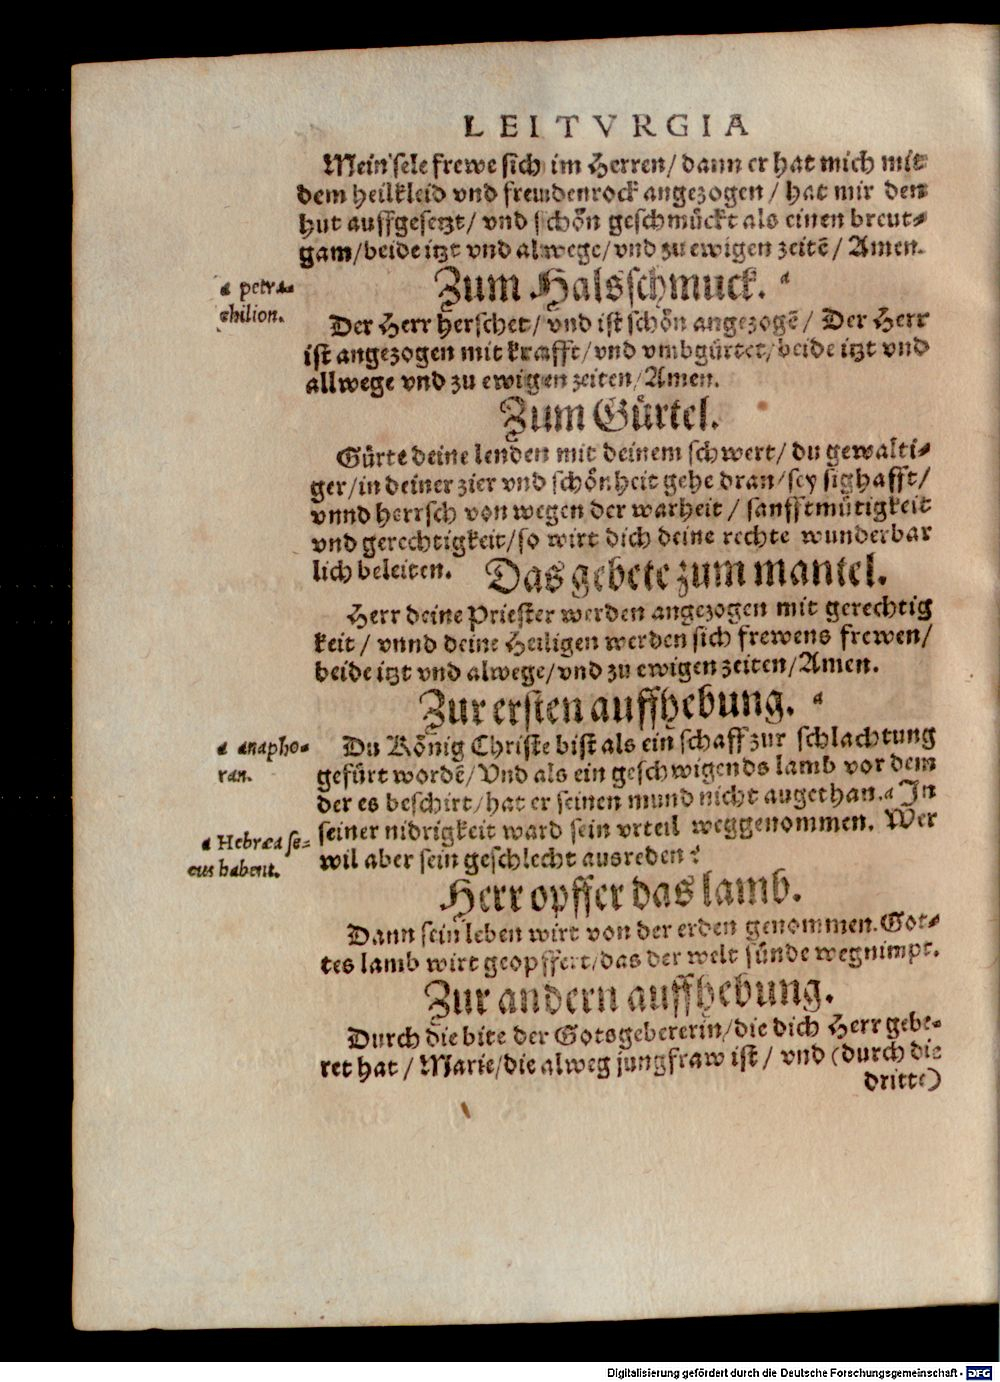 LEITVRGIA
Mein sele frewe sich im Herren/ dann er hat mich mit
dem heilkleid vnd freudenrock angezogen / hat mir den
hut auffgesetzt/ vnd schön geschmückt als einen breut-
gam/beide itzt vnd alwege/vnd zu ewigen zeitē/ Amen.
Zum Halsschmuck. a
a petra-
chilion.
Der Herr herschet/ vnd ist schön angezogē/ Der Herr
ist angezogen mit krafft/vnd vmbgürtet/beide itzt vnd
allwege vnd zu ewigen zeiten/Amen.
Zum Gürtel.
Gürte deine lenden mit deinem schwert/ du gewalti-
ger/in deiner zier vnd schönheit gehe dran/sey sighafft/
vnnd herrsch von wegen der warheit / sanfftmütigkeit
vnd gerechtigkeit/so wirt dich deine rechte wunderbar
lich beleiten. Das gebete zum mantel.
Herr deine Priester werden angezogen mit gerechtig
keit / vnnd deine Heiligen werden sich frewens frewen/
beide itzt vnd alwege/vnd zu ewigen zeiten/Amen.
Zur ersten auffhebung. a
a anapho-
ran.
Du König Christe bist als ein schaff zur schlachtung
gefürt wordē/Vnd als ein geschwigends lamb vor dem
der es beschirt/hat er seinen mund nicht augethan.a In
a Hebræa se-
cus habent.
seiner nidrigkeit ward sein vrteil weggenommen. Wer
wil aber sein geschlecht ausreden?
Herr opffer das lamb.
Dann sein leben wirt von der erden genommen. Got-
tes lamb wirt geopffert/das der welt sünde wegnimpt.
Zur andern auffhebung.
Durch die bite der Gotsgebererin/die dich Herr gebe-
ret hat / Marie/die alweg jungfraw ist / vnd (durch die
dritte)
Digitalisierung gefördert durch die Deutsche Forschungsgemeinschaft - DFG